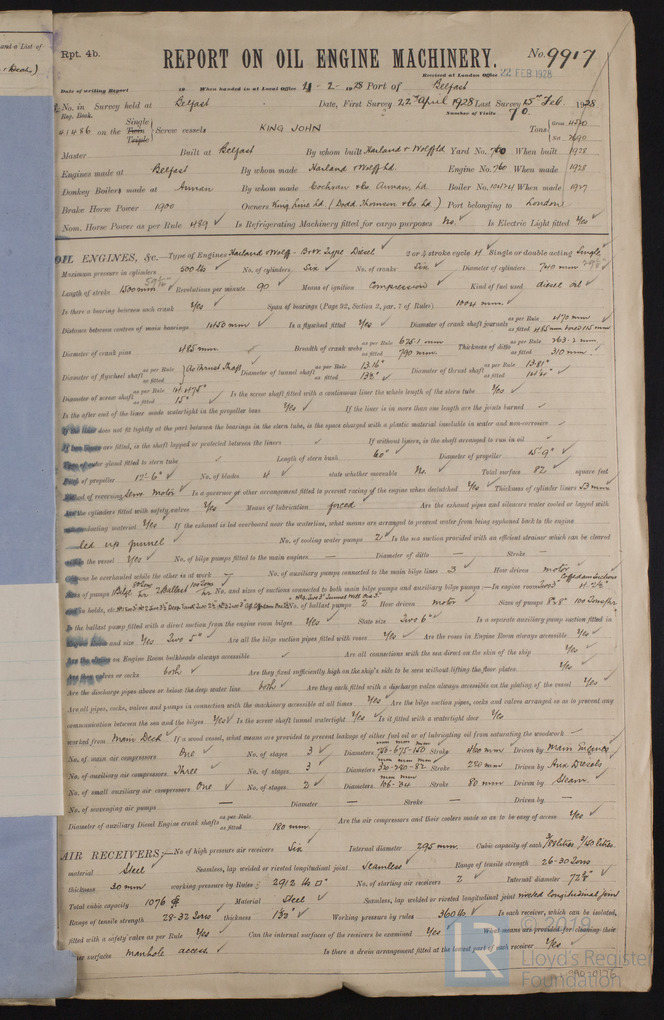 and a List of
Rpt. 4b.
REPORT ON OIL ENGINE MACHINERY.
No. 9917
Received at London Office 22 FEB 1928
Date of writing Report 19 When handed in at Local Office 21-2-1928 Port of Belfast
No. in Survey held at Belfast Date, First Survey 22nd April 1928 Last Survey 15th Feb 1928
Reg. Book. Number of Visits 70
41486 on the Single Twin Triple Screw vessel KING JOHN Tons Gross Net
Master Built at Belfast By whom built Harland & Wolff Ld Yard No. 760 When built 1928
Engines made at Belfast By whom made Harland & Wolff Ld Engine No. 760 When made 1928
Donkey Boilers made at Annan By whom made Cochran & Co Annan, Ld Boiler No. When made 1927
Brake Horse Power 1900 Owners King Line Ld (Dodd Thomson & Co Ld) Port belonging to London
Nom. Horse Power as per Rule 489 Is Refrigerating Machinery fitted for cargo purposes No. Is Electric Light fitted Yes
OIL ENGINES, &c.—Type of Engines Harland & Wolff B & W Type Diesel 2 or 4 stroke cycle 4 Single or double acting Single
Maximum pressure in cylinders 500 lb No. of cylinders Six No. of cranks Six Diameter of cylinders 740 mm
Length of stroke 1500 mm Revolutions per minute 90 Means of ignition Compression Kind of fuel used diesel oil
Is there a bearing between each crank Yes Span of bearings (Page 92, Section 2, par. 7 of Rules) 1004 mm.
Distance between centres of main bearings 1450 mm Is a flywheel fitted Yes Diameter of crank shaft journals as per Rule 470 mm as fitted 485 mm bored 115 mm
Diameter of crank pins 485 mm Breadth of crank webs as per Rule 625.1 mm as fitted 790 mm Thickness of ditto as per Rule 263.2 mm as fitted 310 mm
Diameter of flywheel shaft as per Rule as fitted As Thrust Shaft Diameter of tunnel shaft as per Rule 13.16" as fitted Diameter of thrust shaft as per Rule 13.81" as fitted
Diameter of screw shaft as per Rule 14.475" as fitted 15" Is the screw shaft fitted with a continuous liner the whole length of the stern tube Yes
Is the after end of the liner made watertight in the propeller boss Yes If the liner is in more than one length are the joints burned
does not fit tightly at the part between the bearings in the stern tube, is the space charged with a plastic material insoluble in water and non-corrosive
are fitted, is the shaft lapped or protected between the liners If without liners, is the shaft arranged to run in oil
gland fitted to stern tube Length of stern bush 60" Diameter of propeller 15'-9"
of propeller 12'-6" No. of blades 4 state whether moveable No. Total surface 82 square feet
of reversing Servo Motor Is a governor or other arrangement fitted to prevent racing of the engine when declutched Yes Thickness of cylinder liners 53 mm
the cylinders fitted with safety valves Yes Means of lubrication forced Are the exhaust pipes and silencers water cooled or lagged with
non-conducting material Yes If the exhaust is led overboard near the waterline, what means are arranged to prevent water from being syphoned back to the engine
led up funnel No. of cooling water pumps 2 Is the sea suction provided with an efficient strainer which can be cleared
the vessel Yes No. of bilge pumps fitted to the main engines — Diameter of ditto — Stroke —
be overhauled while the other is at work — No. of auxiliary pumps connected to the main bilge lines 3 How driven motor
of pumps 1 Bilge 2 Ballast No. and sizes of suctions connected to both main bilge pumps and auxiliary bilge pumps:—In engine room
in holds, etc. No. of ballast pumps 2 How driven motor Sizes of pumps 8" x 8" 100 Tons/hr
the ballast pump fitted with a direct suction from the engine room bilges Yes State size Two 6" Is a separate auxiliary pump suction fitted in
and size Yes Two 5" Are all the bilge suction pipes fitted with roses Yes Are the roses in Engine Room always accessible Yes
on Engine Room bulkheads always accessible Are all connections with the sea direct on the skin of the ship Yes
valves or cocks both Are they fixed sufficiently high on the ship's side to be seen without lifting the floor plates Yes
Are the discharge pipes above or below the deep water line both Are they each fitted with a discharge valve always accessible on the plating of the vessel Yes
Are all pipes, cocks, valves and pumps in connection with the machinery accessible at all times Yes Are the bilge suction pipes, cocks and valves arranged so as to prevent any
communication between the sea and the bilges Yes Is the screw shaft tunnel watertight Yes Is it fitted with a watertight door Yes
worked from Main Deck If a wood vessel, what means are provided to prevent leakage of either fuel oil or of lubricating oil from saturating the woodwork —
No. of main air compressors One No. of stages 3 Diameters 750-675-150 mm Stroke mm Driven by Main Engines
No. of auxiliary air compressors Three No. of stages 3 Diameters Stroke 240 mm Driven by Aux Diesels
No. of small auxiliary air compressors One No. of stages 2 Diameters Stroke 80 mm Driven by Steam
No. of scavenging air pumps — Diameter — Stroke — Driven by —
Diameter of auxiliary Diesel Engine crank shafts as per Rule as fitted 180 mm Are the air compressors and their coolers made so as to be easy of access Yes
AIR RECEIVERS:—No. of high pressure air receivers Six Internal diameter 295 mm Cubic capacity of each
material Steel Seamless, lap welded or riveted longitudinal joint Seamless Range of tensile strength 26-30 Tons
thickness 30 mm working pressure by Rules 2912 lb No. of starting air receivers 2 Internal diameter
Total cubic capacity 1076 Material Steel Seamless, lap welded or riveted longitudinal joint riveted longitudinal joint
Range of tensile strength 28-32 Tons thickness Working pressure by rules 360 lb Is each receiver, which can be isolated,
fitted with a safety valve as per Rule Yes Can the internal surfaces of the receivers be examined Yes What means are provided for cleaning their
inner surfaces manhole access. Is there a drain arrangement fitted at the lowest part of each receiver Yes
© 2019
Lloyd's Register
Foundation